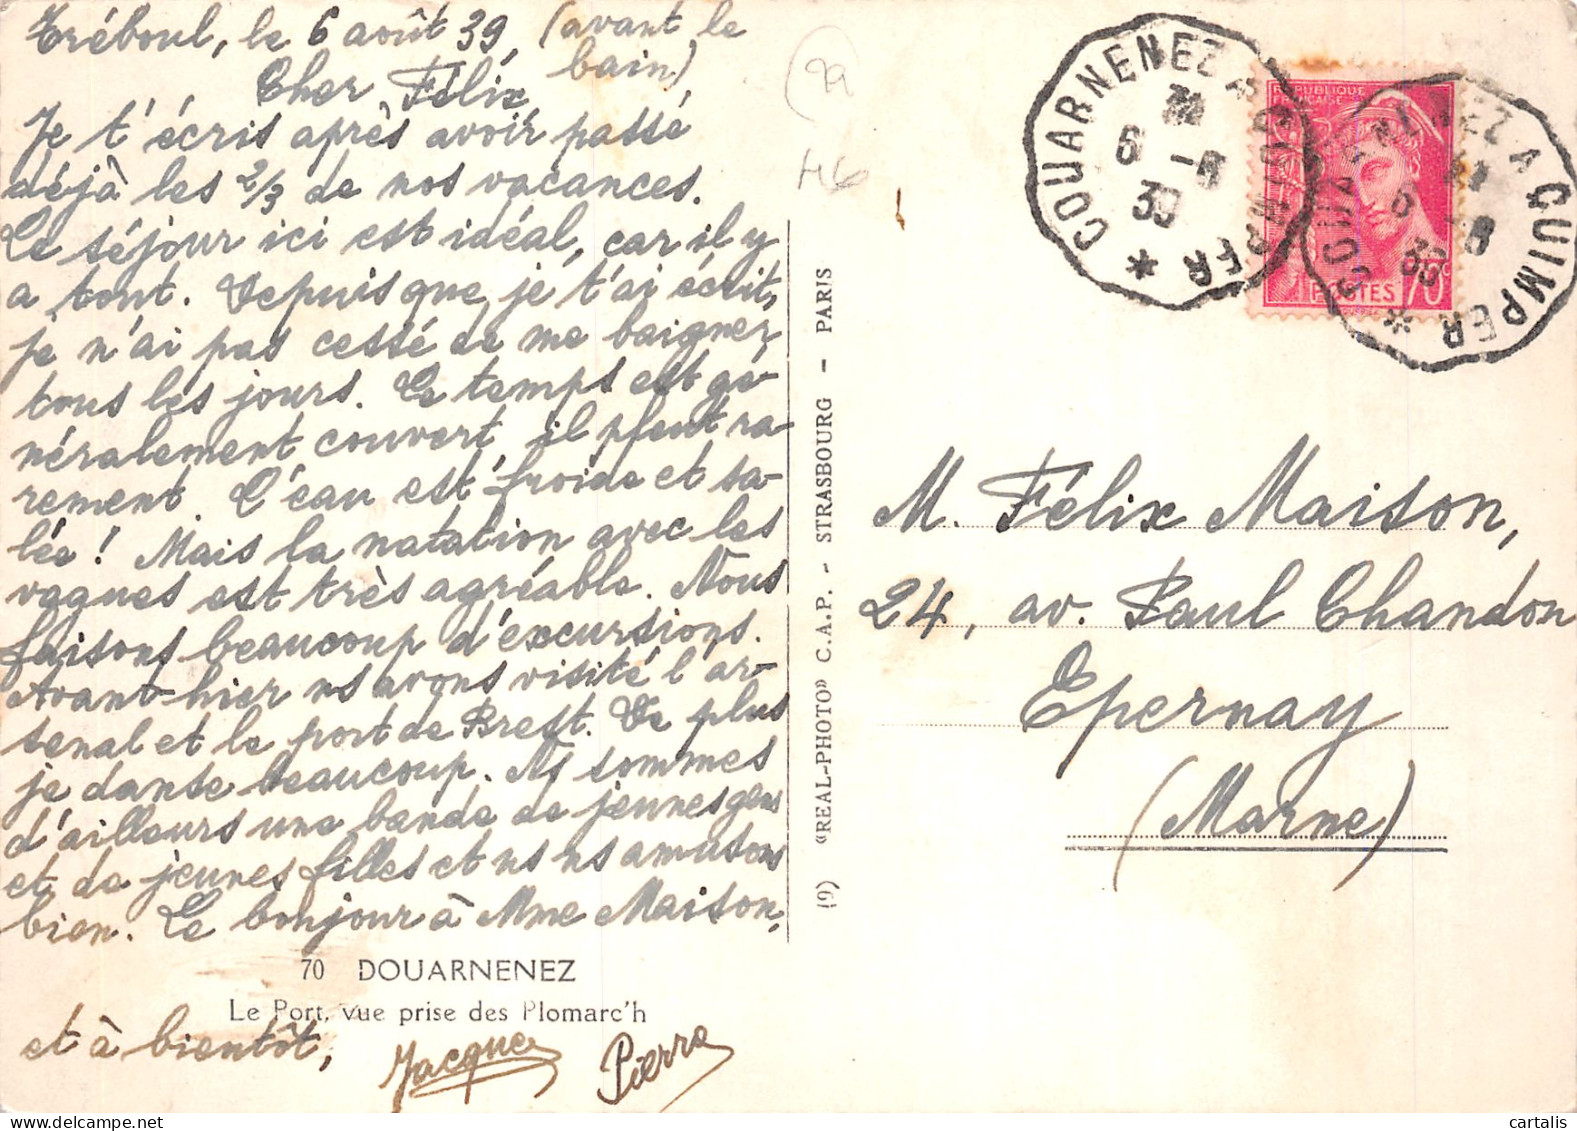 Tréboul, le 6 août 39, (avant le
bain)
Cher Félix,
Je t'écris après avoir passé
déjà les 2/3 de nos vacances.
Le séjour ici est idéal, car il y
a tout. Depuis que je t'ai écrit,
je n'ai pas cessé de me baigner
tous les jours. Le temps est gé-
néralement couvert, il pleut ra-
rement. L'eau est froide et sa-
lée! Mais la natation avec les
vagues est très agréable. Nous
faisons beaucoup d'excursions.
Avant-hier ns avons visité l'ar-
senal et le port de Brest. De plus
je danse beaucoup. Ns sommes
d'ailleurs une bande de jeunes gens
et de jeunes filles et ns ns amusons
bien. Le bonjour à Mme Maison,
70 DOUARNENEZ
Le Port, vue prise des Plomarc'h
et à bientôt,
Jacques
Pierre
(9) «REAL-PHOTO» C.A.P. - STRASBOURG - PARIS
29
H6
DOUARNENEZ A QUIMPER *
6 -8
39
REPUBLIQUE
FRANÇAISE
POSTES 70c
DOUARNENEZ A QUIMPER *
6 -8
39
M. Félix Maison,
24, av. Paul Chandon
Epernay
(Marne)
cartalis